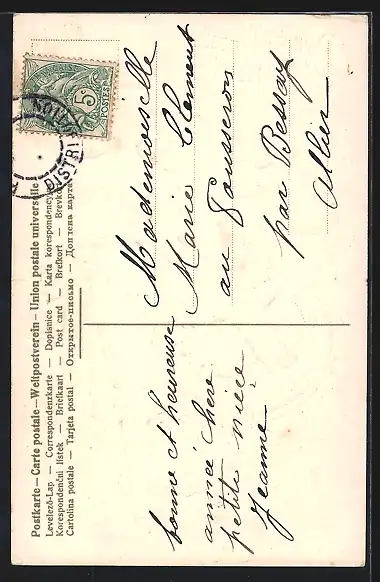 Postkarte — Carte postale — Weltpostverein — Union postale universelle
Levelező-Lap — Correspondenzkarte — Dopisnice — Karta korespondency
Korespondenční lístek — Briefkaart — Post card — Brefkort — Brevko
Cartolina postale — Tarjeta postal — Открытое-письмо — Дописна карта
5c
POSTES
DISTRI
bonne et heureuse
année chère
petite nièce
Jeanne
Mademoiselle
Marie Clement
au Pousseron
par Bessay
Allier